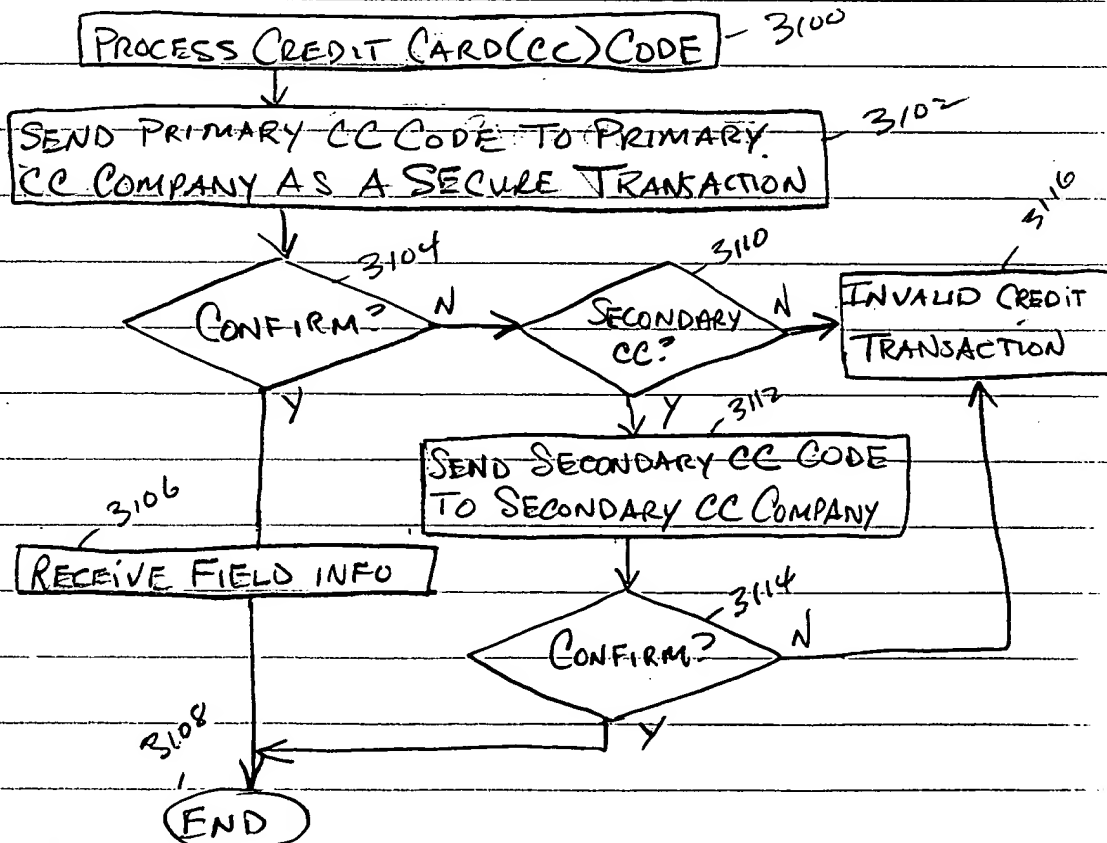 PROCESS CREDIT CARD(CC) CODE
3100
SEND PRIMARY CC CODE TO PRIMARY
CC COMPANY AS A SECURE TRANSACTION
3102
CONFIRM?
3104
N
Y
SECONDARY
CC?
3110
N
Y
INVALID CREDIT
TRANSACTION
3116
SEND SECONDARY CC CODE
TO SECONDARY CC COMPANY
3112
3106
RECEIVE FIELD INFO
CONFIRM?
3114
N
Y
3108
END